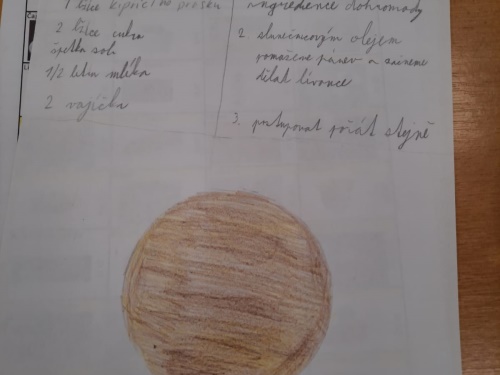 1 lžíce kypřícího prášku
2 lžíce cukru
špetka soli
1/2 litru mléka
2 vajíčka
ingredience dohromady
2. slunečnicovým olejem
pomažeme pánev a začneme
dělat lívance
3. postupovat pořád stejně